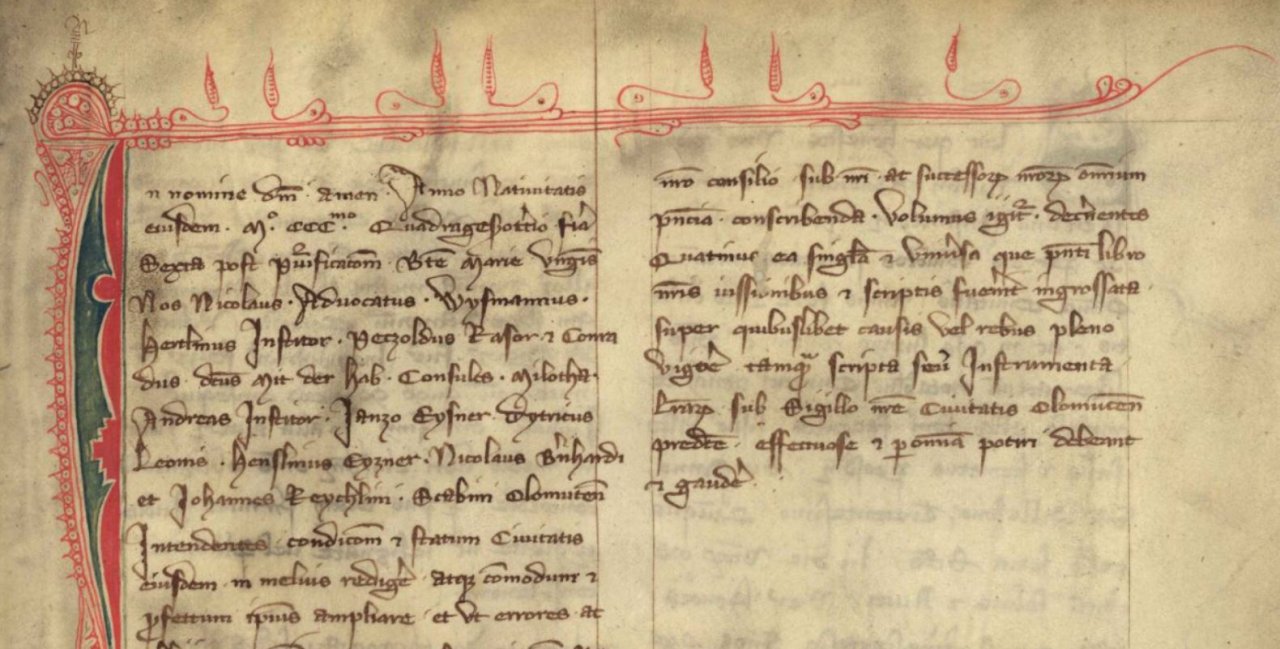 In nomine dni amen Anno Nativitatis
eiusdem · M° CCC^mo · Quadragesimotercio feria
Sexta post purificacom · Bte Marie virgis
Nos Nicolaus · Advocatus · Wysmannus ·
Hertlinus Institor · Peczoldus Rasor · et Conra
dus dcus Mit der hab · Consules · Milotha ·
Andreas Institor · Janzo Eysner dytricus
Leonis · Henslinus Eyzner · Nicolaus Bnhardi
et Johannes Reychlini · Scabini Olomucen
Intendentes condicom et statum Civitatis
eiusdem · in melius redige · atq comodum et
profectum ipius ampliare et ut errores at
nro consilio sub nri at successor nror omnium
pncia · conscribenda · Volumus igitr · decnentes
Quatinus ea singla et vniusa que pnti libro
nris iussionibus et scriptis fuerint ingrossata ·
super quibuslibet causis vel rebus pleno
vigore tamq scripta seu Instrumenta
lrar sub Sigillo nre Civitatis Olomucen
predce effectuose et p omnia potiri debeant
et gaude ·